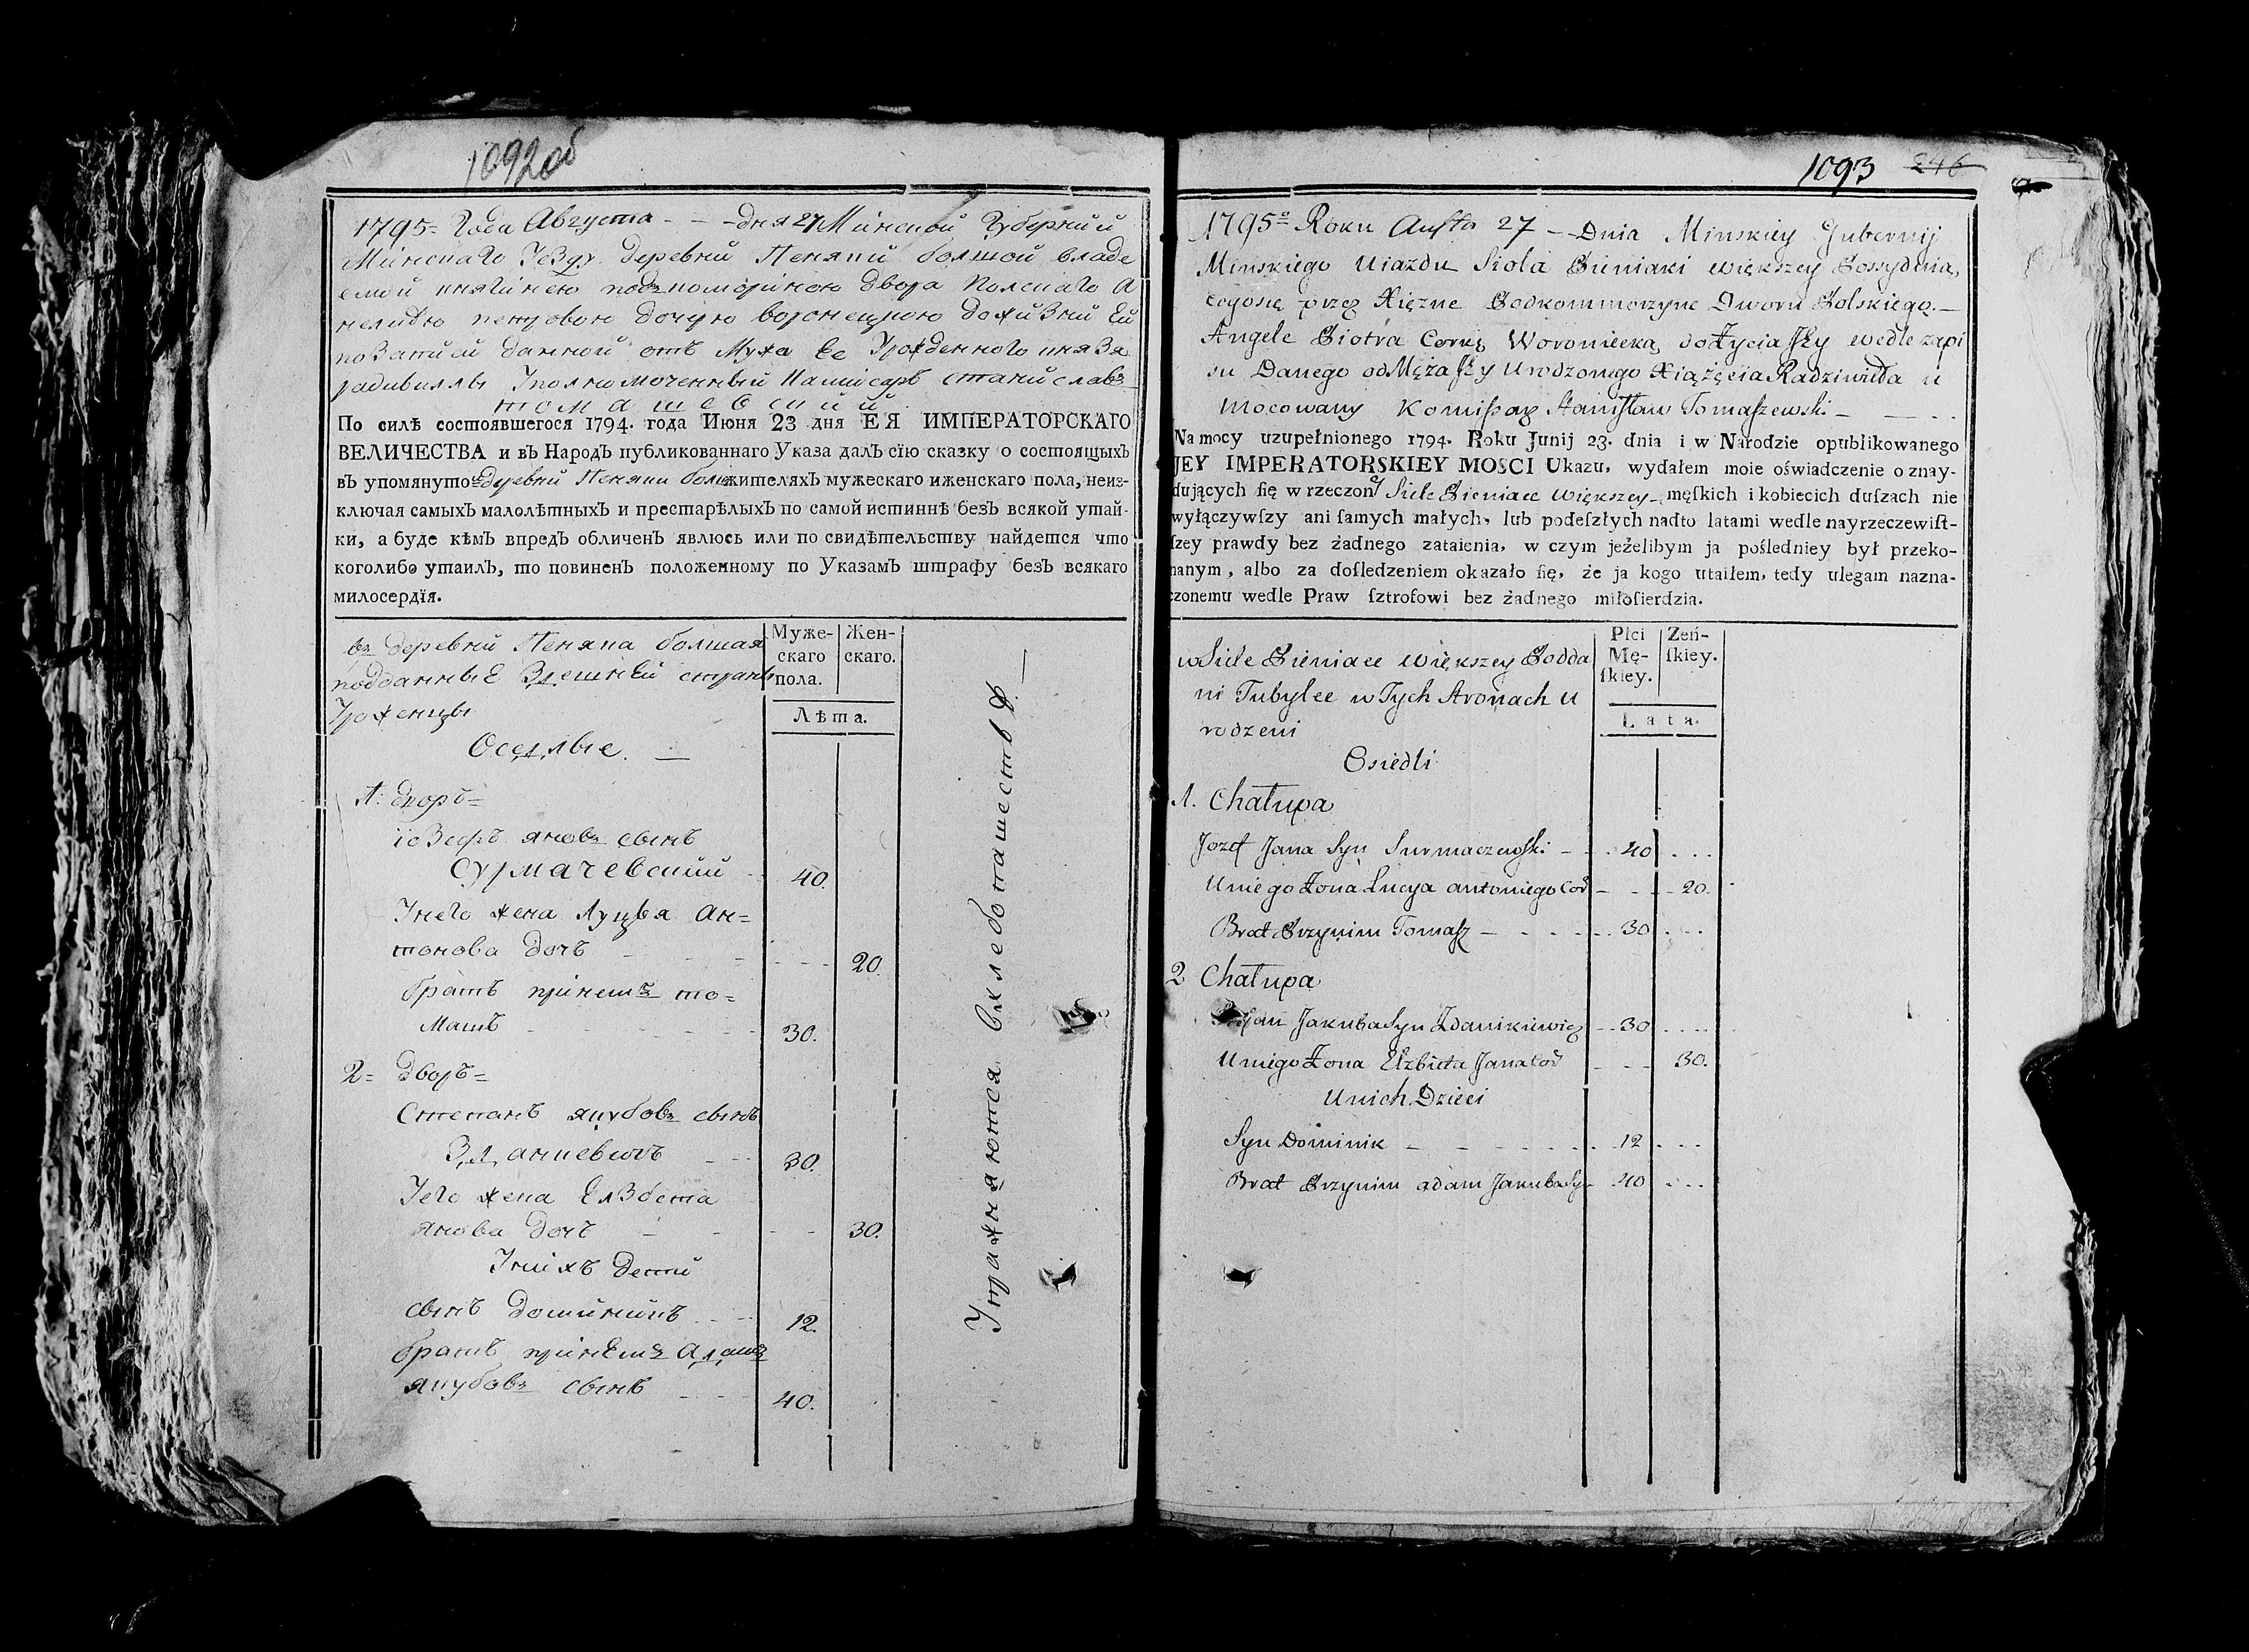 1092об
1795= Года Августа - - -дня 27 Минской Губернии
Минскаго Уезду Деревни Пеняки болшой владе
емой княгинею подкомориною двора полскаго А
нелиею петровою дочерю воронецкою доживний Ей
по записи данной отъ Мужа Ее Урожденного князя
радивиллы Уполномоченный Камисаръ станиславъ
томашевский
По силѣ состоявшегося 1794. года Июня 23 дня ЕЯ ИМПЕРАТОРСКАГО
ВЕЛИЧЕСТВА и въ Народъ публикованнаго Указа далъ сїю сказку о состоящыхъ
въ упомянутой деревни Пеняки болш жителяхъ мужескаго иженскаго пола, неиз-
ключая самыхъ малолѣтныхъ и престарѣлыхъ по самой истиннѣ безъ всякой утай-
ки, а буде кѣмъ впредъ обличенъ явлюсь или по свидѣтельству найдется что
коголибо утаилъ, то повиненъ положенному по Указамъ штрафу безъ всякаго
милосердїя.
въ деревни Пеняка болшая
подданные Здешней страны
Уроженцы
Муже-
скаго
пола.
Жен-
скаго.
Лѣта.
Оседлые. —
1: дворъ=
іозефъ яновъ сынъ
Сурмачевский 40.
Унего жена Луцыя Ан=
тонова дочъ - - - 20.
братъ принемъ то=
машъ - - - 30.
2= Дворъ=
Степанъ якубовъ сынъ
Зданкевичъ - - 30.
Уего жена Елзбета
янова дочъ - - - 30.
Унихъ дети
сынъ доминикъ - - 12.
братъ принемъ Адамъ
якубовъ сынъ - - 40.
Упражняются вхлебопашестве. —
1093 246
1795º Roku Austa 27 – Dnia Minskiey Gubernij
Minskiego Uiazdu Siola Pieniaki większey Possyduia,
cegosię przez Xięzne Podkommorzyne Dworu Polskiego. —
Angele Piotra Corkę Woroniecką doŻycia Jey wedle zapi
su Danego od Męża Jey Urodzonego Xiążęcia Radziwiłła u
mocowany Komissarz Stanisław Tomaszewski — — . .
Na mocy uzupełnionego 1794. Roku Junij 23. dnia i w Narodzie opublikowanego
JEY IMPERATORSKIEY MOSCI Ukazu, wydałem moie oświadczenie o znay-
dujących ſię w rzeczoney Siele Pieniace większey męſkich i kobiecich duſzach nie
wyłączywſzy ani ſamych małych, lub podeſzłych nadto latami wedle nayrzeczewiſt-
ſzey prawdy bez żadnego zataienia, w czym jeżelibym ja pośledniey był przeko-
nanym, albo za doſledzeniem okazało ſię, że ja kogo utaiłem, tedy ulegam nazna-
czonemu wedle Praw ſztrofowi bez żadnego miłoſierdzia.
w Siele Pieniace większey Podda
ni Tubylce w Tych Stronach u
rodzeni
Płci
Mę-
ſkiey.
Zeń-
ſkiey.
Lata.
Osiedli
1. Chałupa
Jozef Jana Syn Surmaczewski - - 40 . . .
Uniego Żona Łucya antoniego Cor - - - 20.
Brat Przynim Tomasz — - - - - 30 . . .
2 Chałupa
Jakuba Syn Zdankiewicz - - 30 . . . .
Uniego Żona Elzbieta Jana Cor - - - 30.
Unich Dzieci
Syn Dominik — - - - - - 12 . . .
Brat Przynim adam Jakuba Syn - 40 . . .